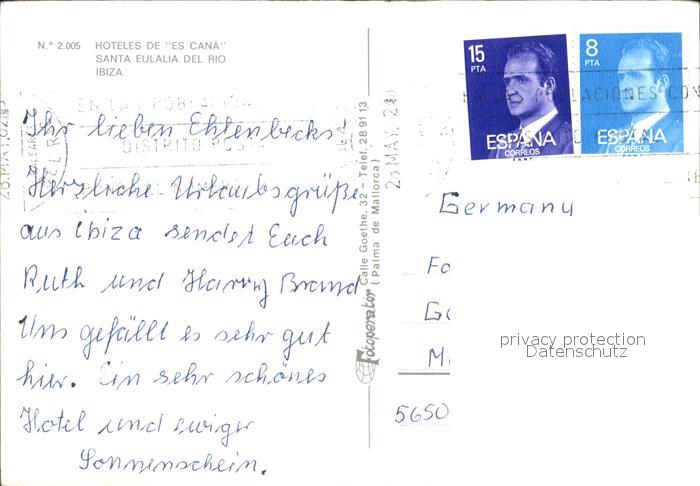 N.º 2.005 HOTELES DE "ES CANÁ"
SANTA EULALIA DEL RIO
IBIZA
Ihr lieben Ehlenbecks!
Herzliche Urlaubsgrüße
aus Ibiza sendet Euch
Ruth und Harry Brand
Uns gefällt es sehr gut
hier. Ein sehr schönes
Hotel und ewiger
Sonnenschein.
Fotoperator Calle Goethe, 32 - Telef. 28 91 13
(Palma de Mallorca)
15
PTA
ESPAÑA
CORREOS
8
PTA
ESPAÑA
CORREOS
DISTRITO
Germany
5650
privacy protection
Datenschutz